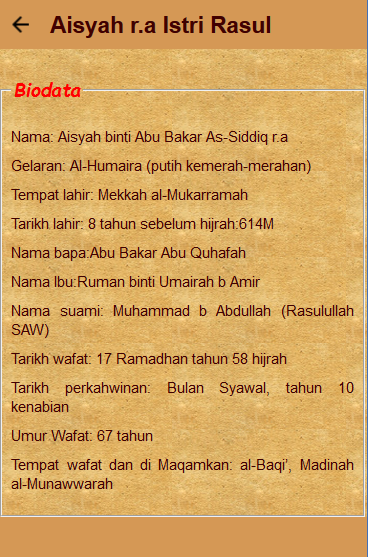 Aisyah r.a Istri Rasul
Biodata
Nama: Aisyah binti Abu Bakar As-Siddiq r.a
Gelaran: Al-Humaira (putih kemerah-merahan)
Tempat lahir: Mekkah al-Mukarramah
Tarikh lahir: 8 tahun sebelum hijrah:614M
Nama bapa:Abu Bakar Abu Quhafah
Nama Ibu:Ruman binti Umairah b Amir
Nama suami: Muhammad b Abdullah (Rasulullah
SAW)
Tarikh wafat: 17 Ramadhan tahun 58 hijrah
Tarikh perkahwinan: Bulan Syawal, tahun 10
kenabian
Umur Wafat: 67 tahun
Tempat wafat dan di Maqamkan: al-Baqi’, Madinah
al-Munawwarah